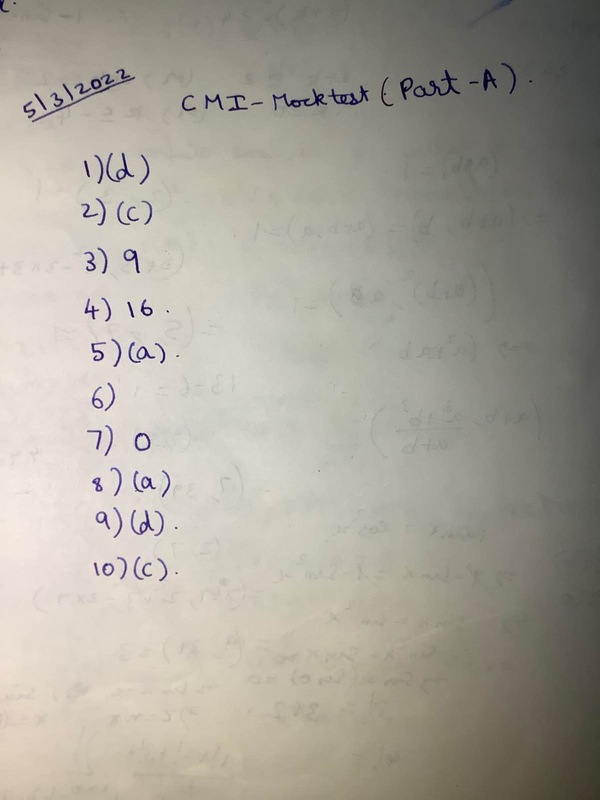 5/3/2022
CMI - Mock test (Part - A).
1) (d)
2) (c)
3) 9
4) 16.
5) (a).
6)
7) 0
8) (a)
9) (d).
10) (c).